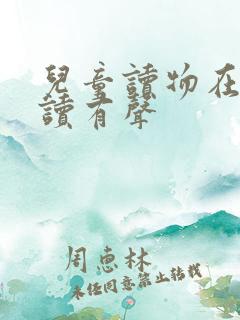 兒童讀物在
讀有聲
周惠林
未經同意禁止轉載